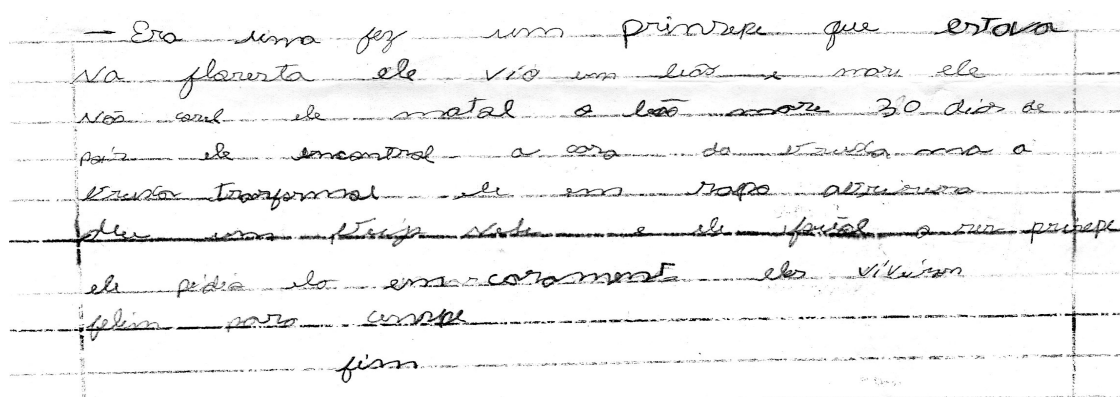 — Era uma fez um prinsepe que estava
na floresta ele vio um leão e mas ele
não corel ele matal o leão mare 30 dias de
pois ele encontral a casa da bruxa ma a
bruxa trasformal ele em sapo a
deu um beijo nele e ele a ser prinsepe
ele pidio ela em casament eles viviron
felim para cempe
fim